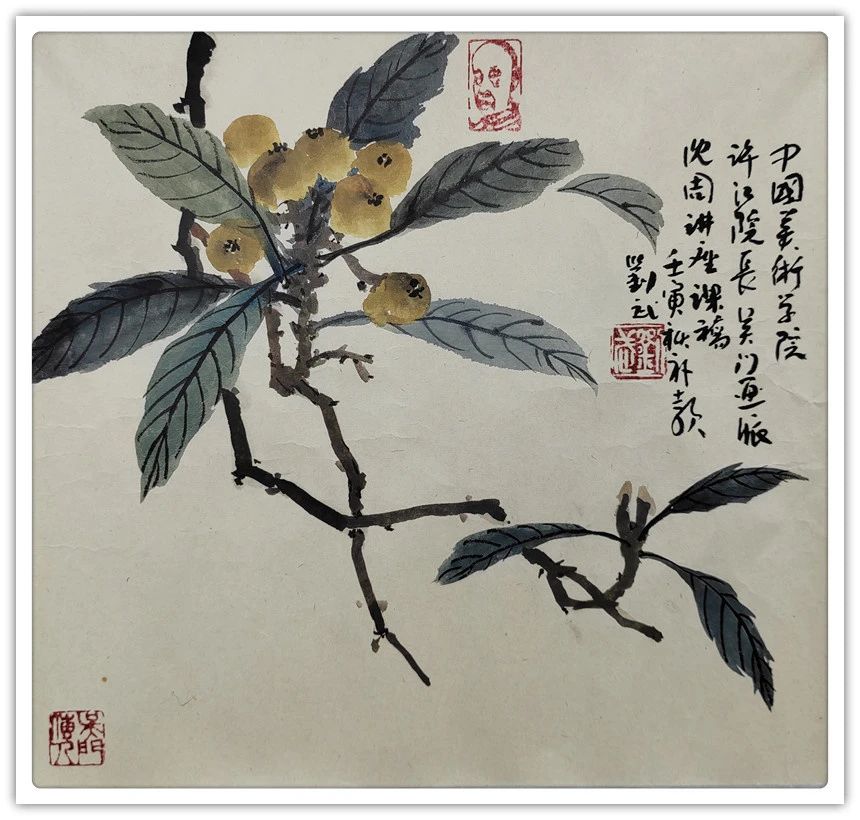 中國美術学院
许江院長吴门画派
沈周讲座課稿
壬寅秋补
劉武
吴門傳人